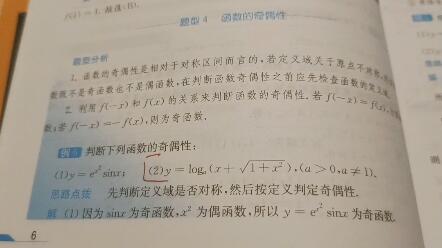 f(1)=1. 故选(B).
题型 4 函数的奇偶性
题型分析
1. 函数的奇偶性是相对于对称区间而言的, 若定义域关于原点不对称,
数既不是奇函数也不是偶函数, 在判断函数奇偶性之前应先检查函数的定义域
2. 利用 f(-x) 和 f(x) 的关系来判断函数的奇偶性. 若 f(-x)=f(x),
数; 若 f(-x)=-f(x), 则为奇函数.
例 判断下列函数的奇偶性:
(1)y=e^{x²}sinx; (2)y=logₐ(x+√(1+x²)),(a>0,a≠1).
思路点拨 先判断定义域是否对称, 然后按定义判定奇偶性.
解 (1) 因为 sinx 为奇函数, x² 为偶函数, 所以 y=e^{x²}sinx 为奇函数.
6